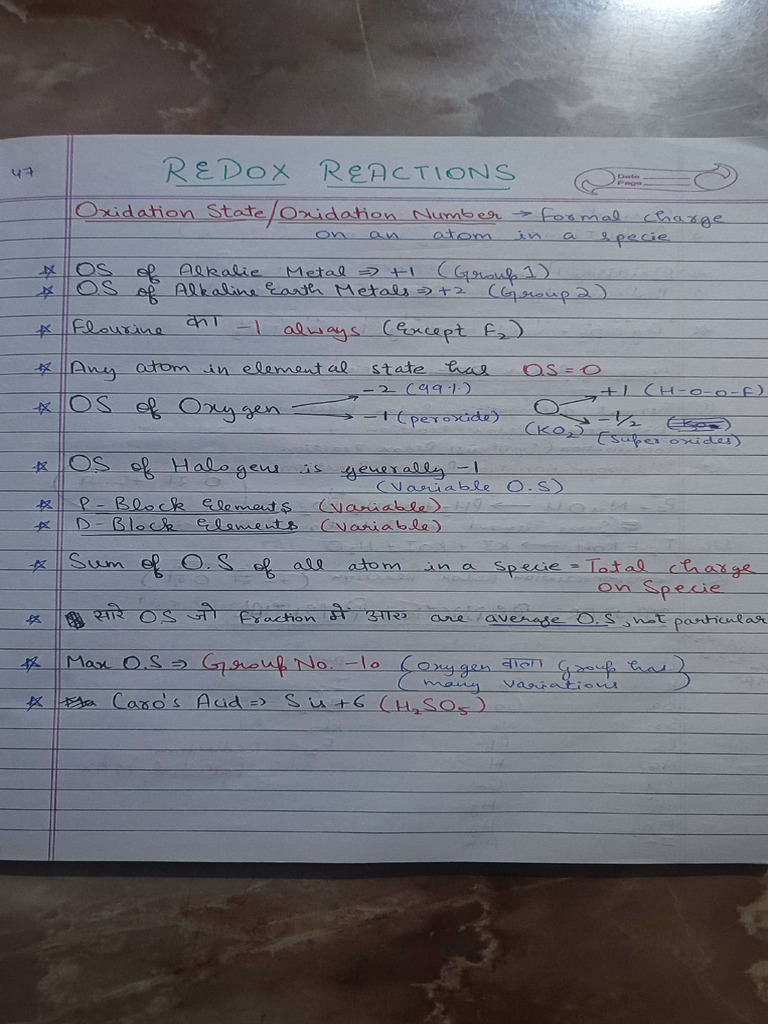 47
REDOX REACTIONS
Date
Page
Oxidation State/Oxidation Number → Formal charge
on an atom in a specie
☆ OS of Alkalie Metal ⇒ +1 (Group 1)
☆ OS of Alkaline Earth Metals ⇒ +2 (Group 2)
☆ Flourine का -1 always (Except F₂)
☆ Any atom in elemental state has OS = 0
☆ OS of Oxygen → -2 (99%) → -1 (peroxide) O → +1 (H-O-O-F) → -1/2
(KO₂) (Super oxides)
☆ OS of Halogens is generally -1
(Variable O.S)
☆ P-Block Elements (Variable)
☆ D-Block Elements (Variable)
☆ Sum of O.S of all atom in a specie = Total charge
on Specie
☆ सारे OS जो fraction में आए are average O.S, not particular
☆ Max O.S ⇒ Group No. -10 (Oxygen वाला Group has)
(many variations)
☆ Caro's Acid ⇒ S is +6 (H₂SO₅)